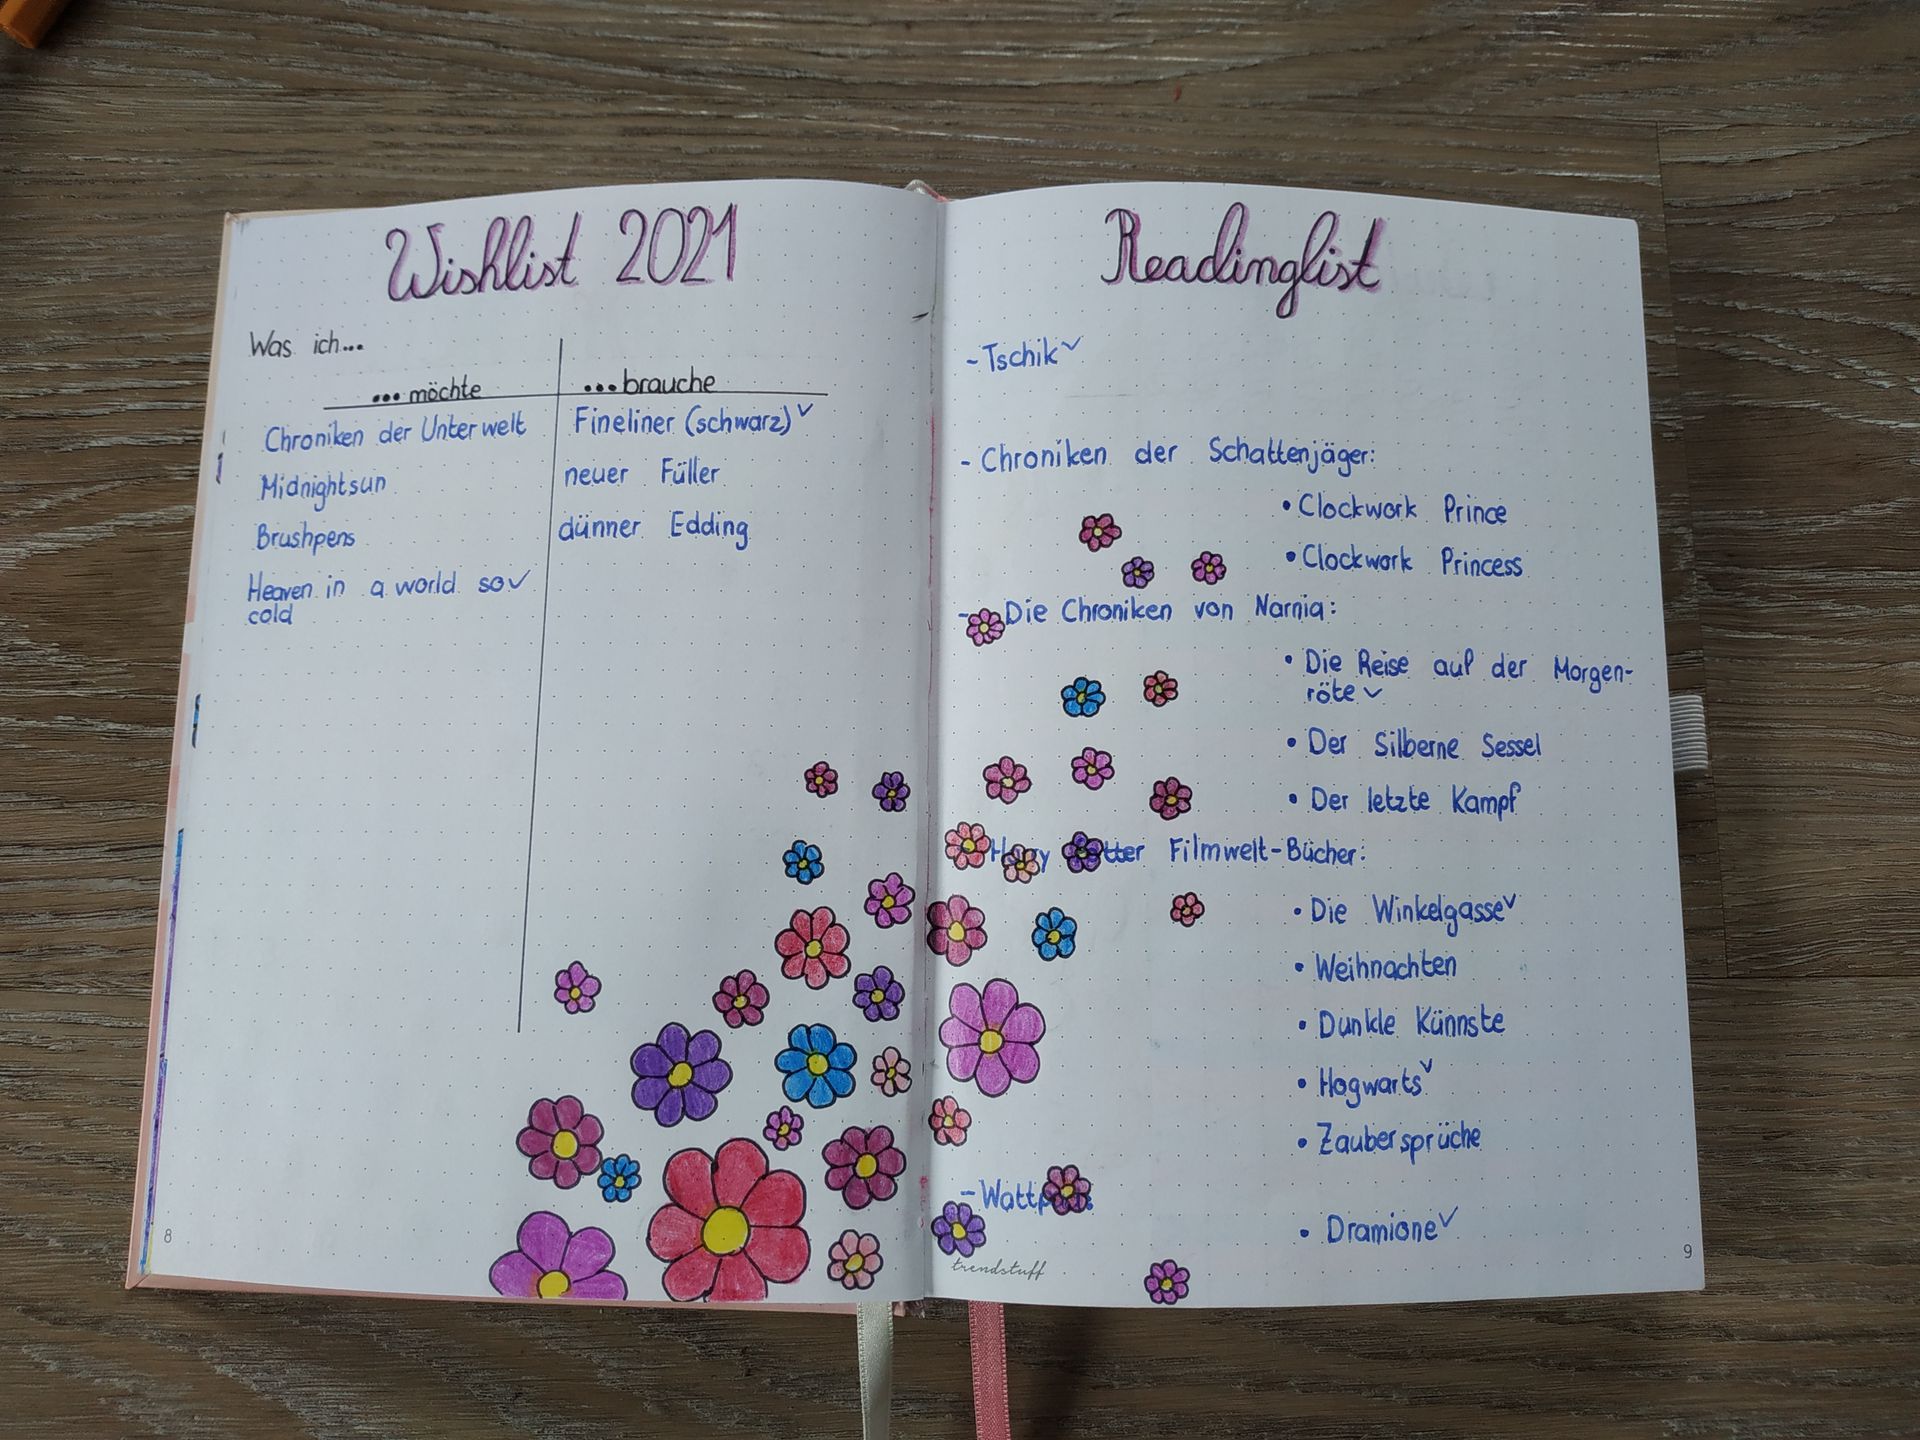 Wishlist 2021
Was ich...
...möchte
...brauche
Chroniken der Unterwelt
Fineliner (schwarz) ✓
Midnightsun
neuer Füller
Brushpens
dünner Edding
Heaven in a world so ✓
cold
8
Readinglist
- Tschik ✓
- Chroniken der Schattenjäger:
• Clockwork Prince
• Clockwork Princess
- Die Chroniken von Narnia:
• Die Reise auf der Morgen-
röte ✓
• Der Silberne Sessel
• Der letzte Kampf
Harry Potter Filmwelt-Bücher:
• Die Winkelgasse ✓
• Weihnachten
• Dunkle Künnste
• Hogwarts ✓
• Zaubersprüche
- Wattpad:
• Dramione ✓
trendstuff
9